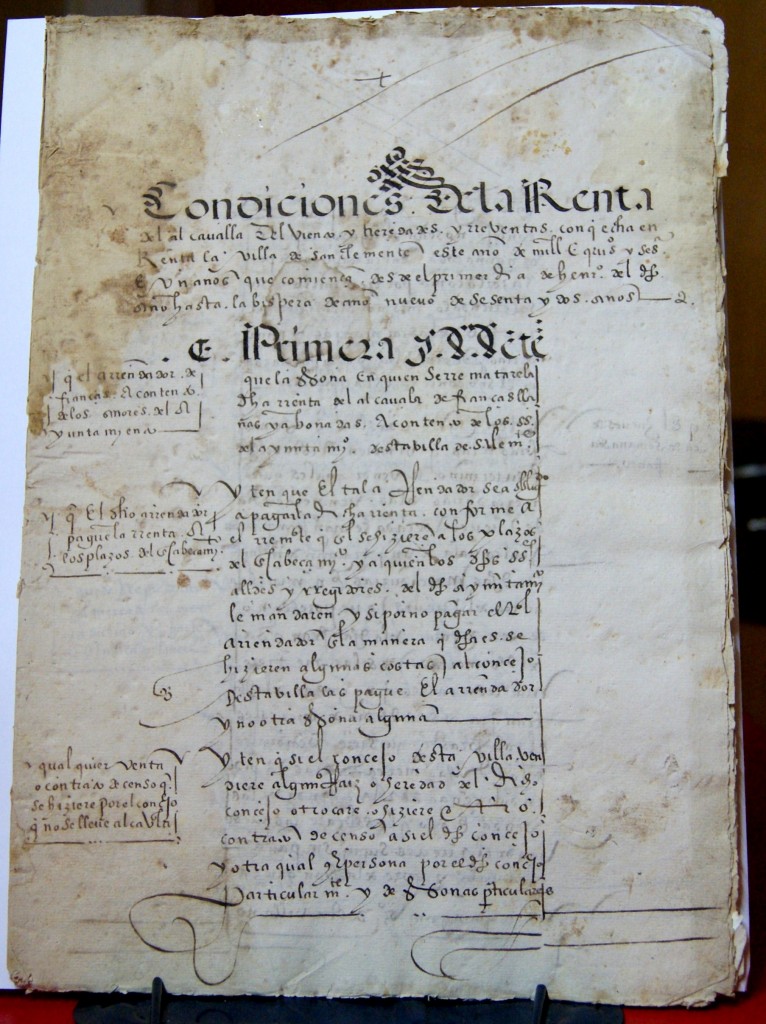 Condiciones. De la Renta
del alcavalla del viento y heredades. y rreventas. con q̄ echa en
Renta la villa de san clemente este año de mill E quis y ses.
E un años que comiença desde el primer dia de henro. del dho
año hasta. la bispera de año nuevo de sesenta y dos. años
Primera
que la psona En quien se rrematare la
dha rrenta del alcavala de francas lla
nas y abonadas. A contento de los. ss.
del ayuntamio. desta villa de s. clemte
y ten que El tal arrendador sea oblig
a pagar la dicha rrenta. conforme a
el rremate q̄ se hiziere a los plazos
del Encabeçamio. y a quien los dhos ss
alldes y rregidores. del dho ayuntamio
le mandaren y si por no pagar el tal
arrendador de la manera q̄ dha es. se
hizieren algunas costas al concejo
desta villa las pague El arrendador
y no otra psona alguna
y ten q̄ si el concejo desta villa ven
diere algun Raiz o heredad del dho
concejo o trocare. o hiziere o
contrato de censo asi el dho concejo
y otra qual qr persona por el dho concejo
Particularmte. y de psonas particulares
q̄ el arrendador. de
francas. A contento
de los señores del A
yuntamiento
q̄ El dho arrendador
pague la rrenta A
los plazos del Encabeçamio
qual quier venta
o contrato de censo q̄
se hiziere por el concejo
q̄ no se lleve alcavala